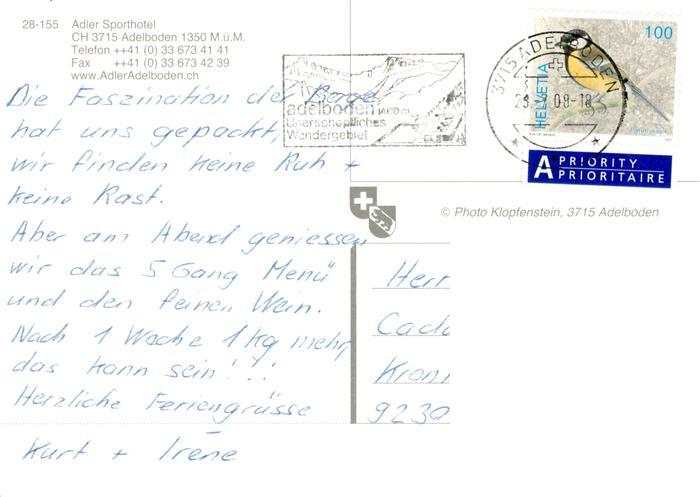 28-155 Adler Sporthotel
CH 3715 Adelboden 1350 M.ü.M.
Telefon ++41 (0) 33 673 41 41
Fax ++41 (0) 33 673 42 39
www.AdlerAdelboden.ch
adelboden 1400 m
Unerschöpfliches
Wandergebiet
3715 ADELBODEN
08-18
100
HELVETIA
A PRIORITY
PRIORITAIRE
© Photo Klopfenstein, 3715 Adelboden
Die Faszination der Berge
hat uns gepackt,
wir finden keine Ruh +
keine Rast.
Aber am Abend geniessen
wir das 5 Gang Menü
und den feinen Wein.
Nach 1 Woche 1 Kg mehr,
das kann sein!!!
Herzliche Feriengrüsse
Kurt + Irène
Herr
9230